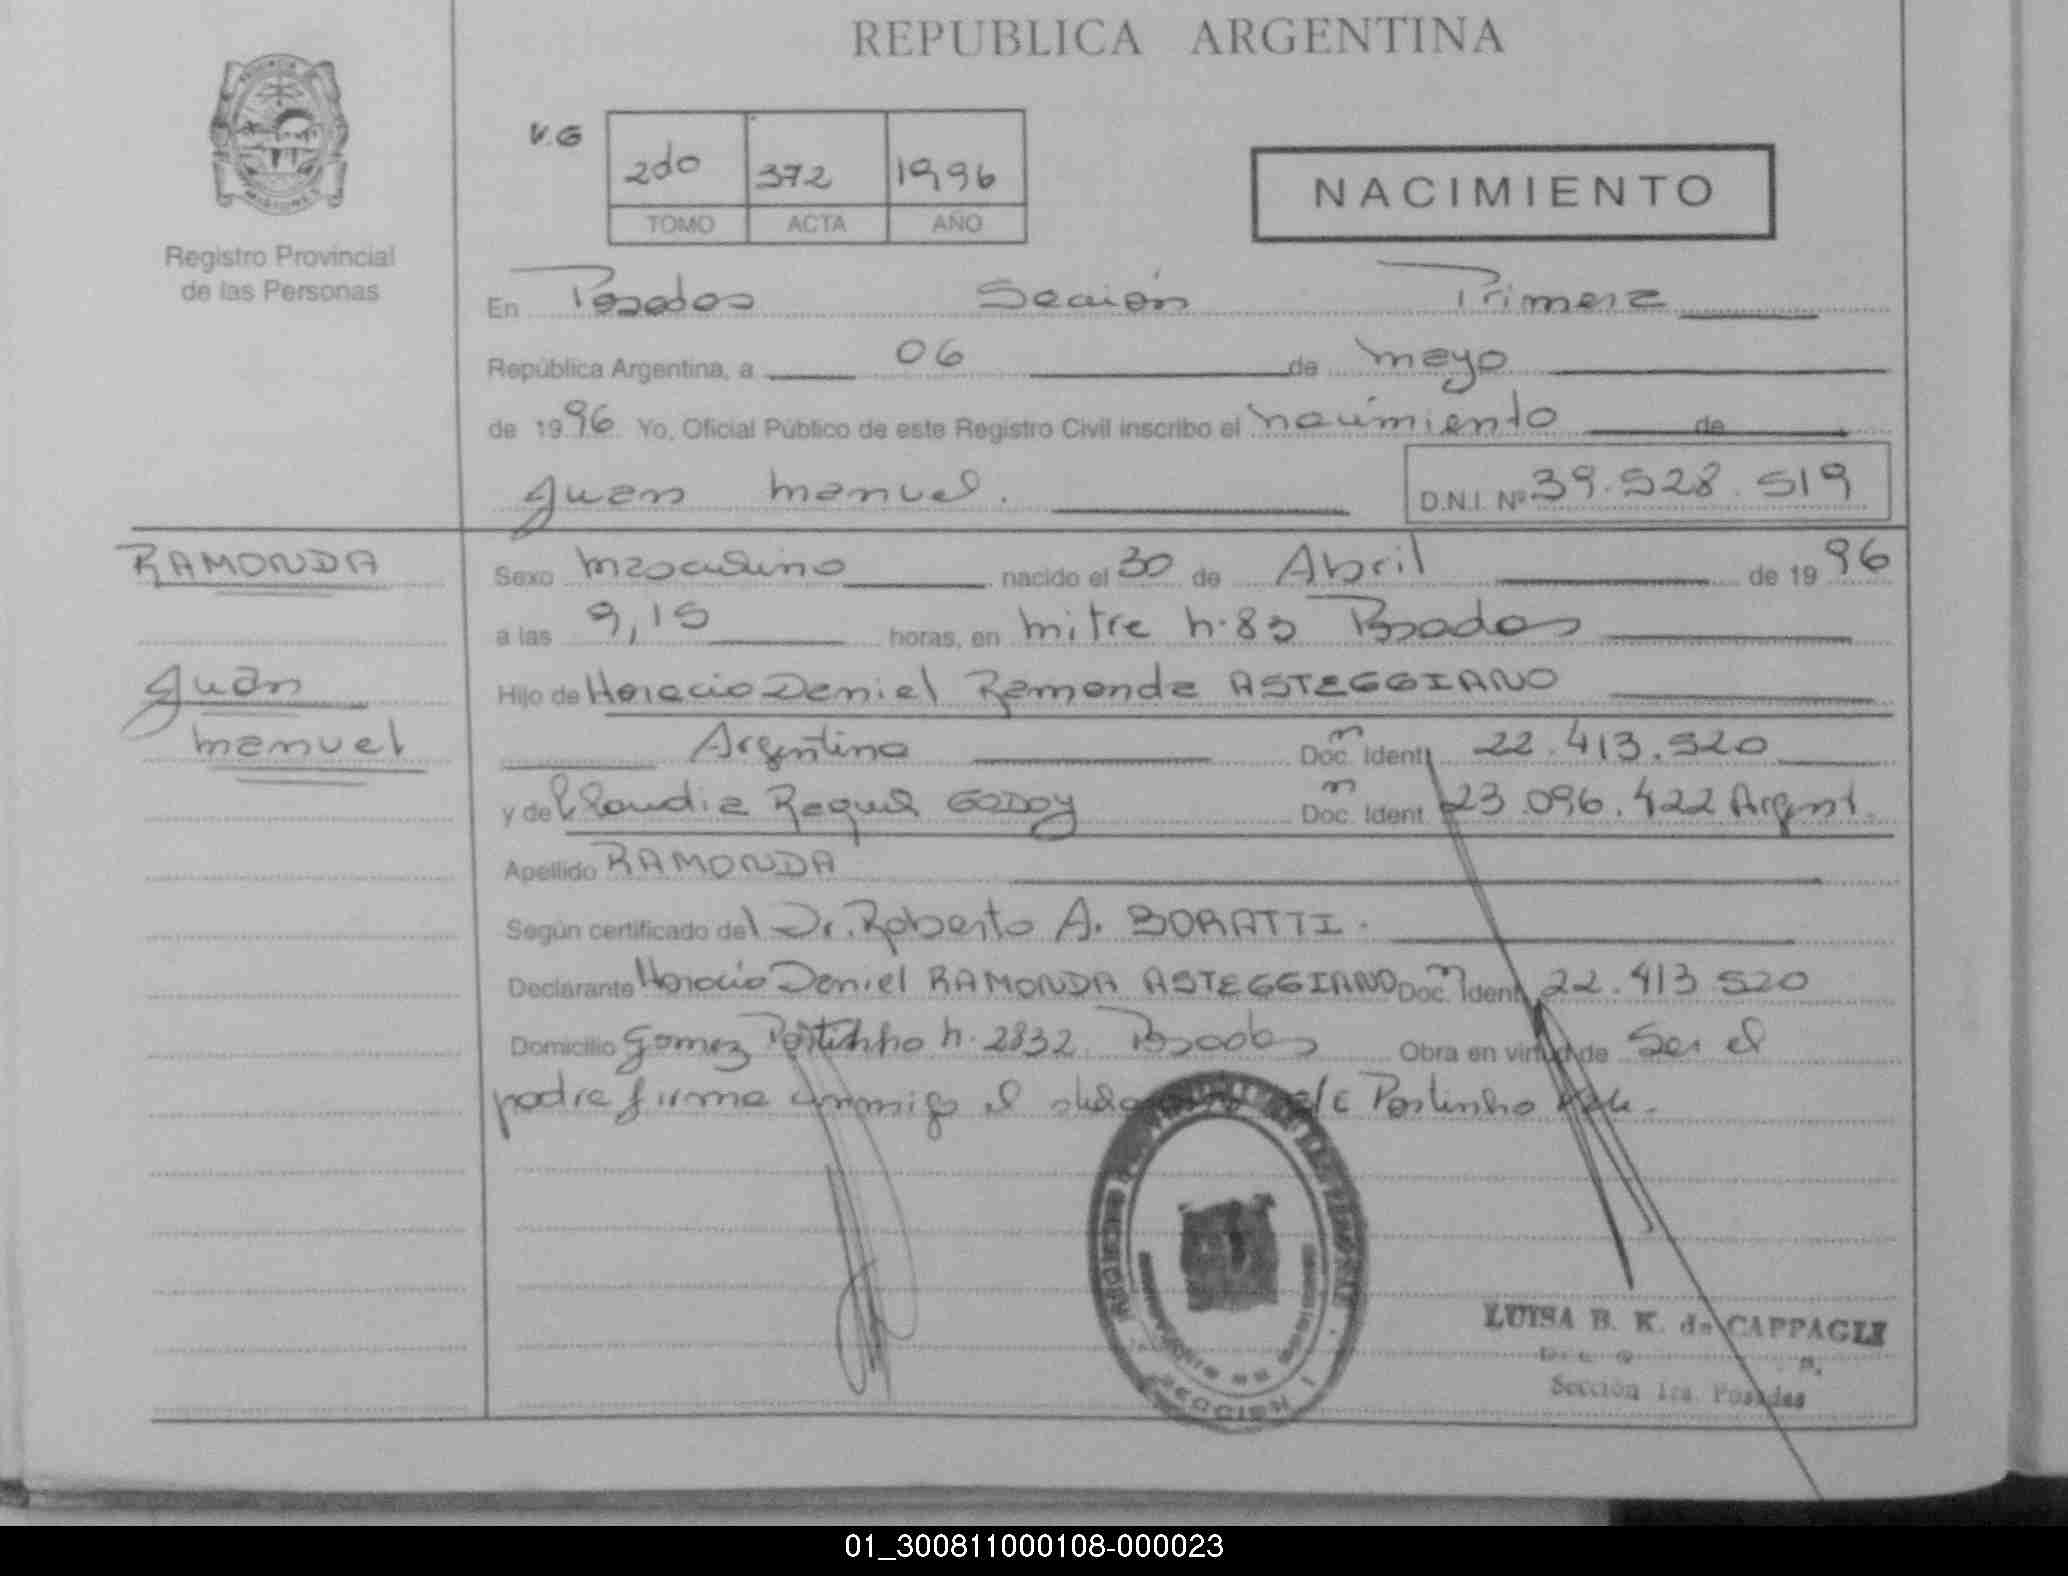 REPUBLICA ARGENTINA
MISIONES
Registro Provincial
de las Personas
V.G
2do 372 1996
TOMO ACTA AÑO
NACIMIENTO
En Posadas Sección Primera
República Argentina, a 06 de mayo
de 1996 Yo, Oficial Público de este Registro Civil inscribo el nacimiento de
Juan Manuel. D.N.I. Nº 39.528.519
RAMONDA
Juan
Manuel
Sexo Masculino nacido el 30 de Abril de 1996
a las 9,15 horas, en Mitre n.83 Posadas
Hijo de Horacio Daniel Ramonda ASTEGGIANO
Argentino Doc. Ident. m 22.413.520
y de Claudia Raquel GODOY Doc. Ident. m 23.096.422 Argent.
Apellido RAMONDA
Según certificado del Dr. Roberto A. BORATTI.
Declarante Horacio Daniel RAMONDA ASTEGGIANO Doc. Ident. m 22.413.520
Domicilio Gomez Portinho n. 2832 Posadas Obra en virtud de Ser el
padre firma conmigo el Portinho Vale.
SECCION 1
LUISA B. K. de CAPPAGLI
Sección 1ra. Posadas
01_300811000108-000023